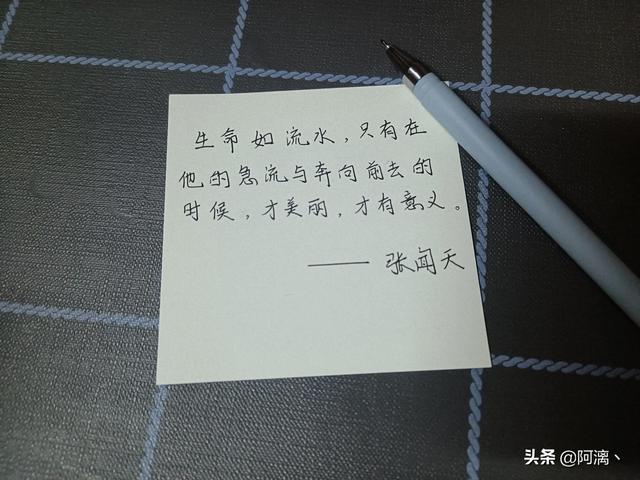 生命如流水，只有在
他的急流与奔向前去的
时候，才美丽，才有意义。
——张闻天
头条 @阿漓丶